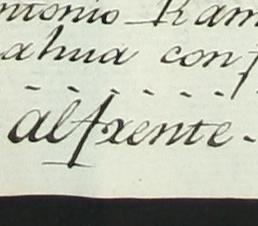 ntonio Ram
ahua conf
alfrente-